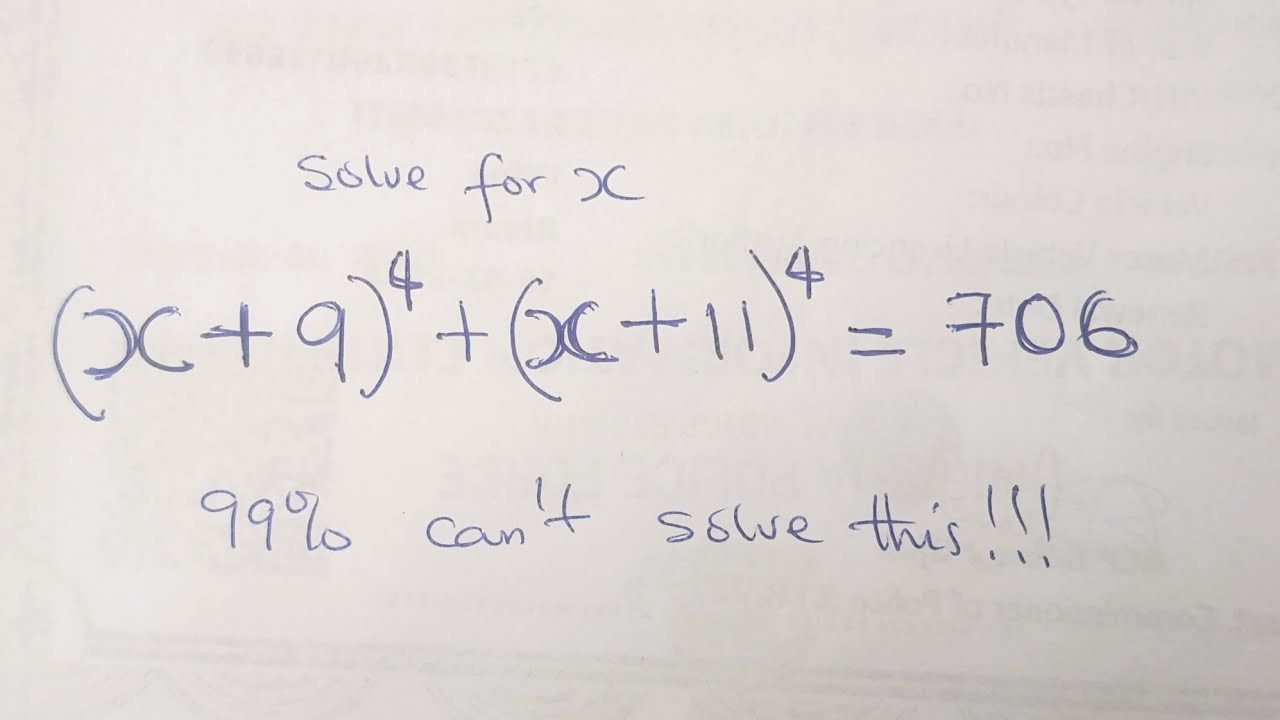 Solve for x
(x+9)⁴+(x+11)⁴=706
99% can't solve this!!!